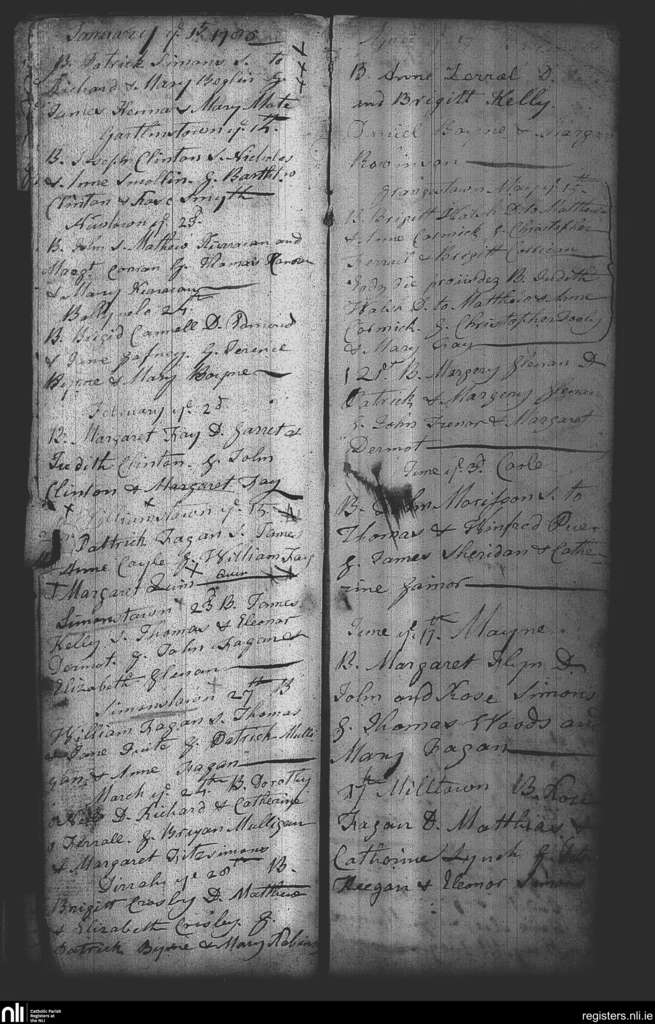 January ye 1st 17
B. Patrick Simons S. to
Richard & Mary Boglin G.
James Henna & Mary Mate
Gartlinstown ye 14th.
B. Joseph Clinton S. Nicholas
& Anne Smollin. G. Barthlo
Clinton & Rose Smyth
Newtown ye 23d.
B. John S. Mathew Kearnan and
Margt. Conran G. Thomas
& Mary Kearnan
Ballynalo 24th
B. Brigid Cannell D. Edmond
& Jane Gafney. G. Terence
Byrne & Mary Boyne
February ye 2d
B. Margaret Fay D. Garret &
Judith Clinton. G. John
Clinton & Margaret Fay
Williamstown ye 15th
Pattrick Fagan S. James
Anne Coyle G. William Fay
& Margaret Quin
Simonstown 23d B. James
Kelly S. Thomas & Eleonor
Dermot. G. John Fagan &
Elizabeth Glenan
Simonstown 27th B
William Fagan S. Thomas
& Jane Tuite G. Patrick Mulli
gan & Anne Fagan
March ye 24th B. Dorothy
D. Richard & Catherine
Ferrall. G. Bryan Mulligan
& Margaret Fitzsimons
ye 28th B.
Brigitt Crosby D. Matthew
& Elizabeth Crosby. G.
Patrick Byrne & Mary Robin
B. Anne Ferral D.
and Brigitt Kelly.
Daniel Boyne & Margar
Robinson
Grangestown May ye 17th
B. Brigitt Walsh D. to Matthew
& Anne Cormick G. Christopher
& Brigitt Corrigan
B. Judith
Walsh D. to Matthew & Anne
Cormick. G. Christopher Dooly
& Mary Fay
21st B. Margery Glenan D
Patrick & Margery
G. John Trenor & Margaret
Dermot
June ye 3d. Carle
B. John Morisson S. to
Thomas & Winfred
G. James Sheridan & Cathe-
rine Gainor
June ye 17th Mayne.
B. Margaret Flyn D.
John and Rose Simons
G. Thomas Woods and
Mary Fagan
17th Milltown B. Rose
Fagan D. Matthias &
Catharine Lynch G.
Keegan & Eleonor Simons
nli
Catholic Parish
Registers at
the NLI
registers.nli.ie